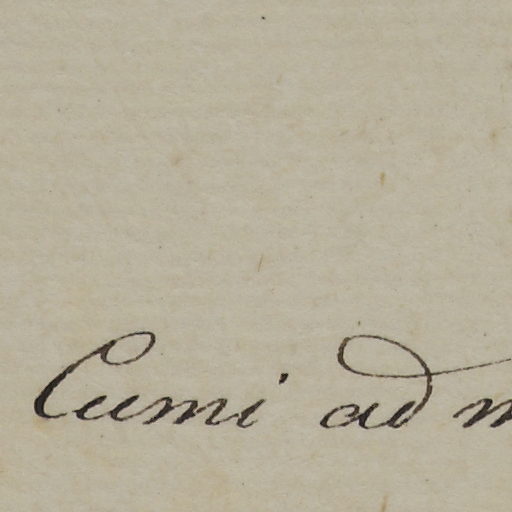 Cumi ad m